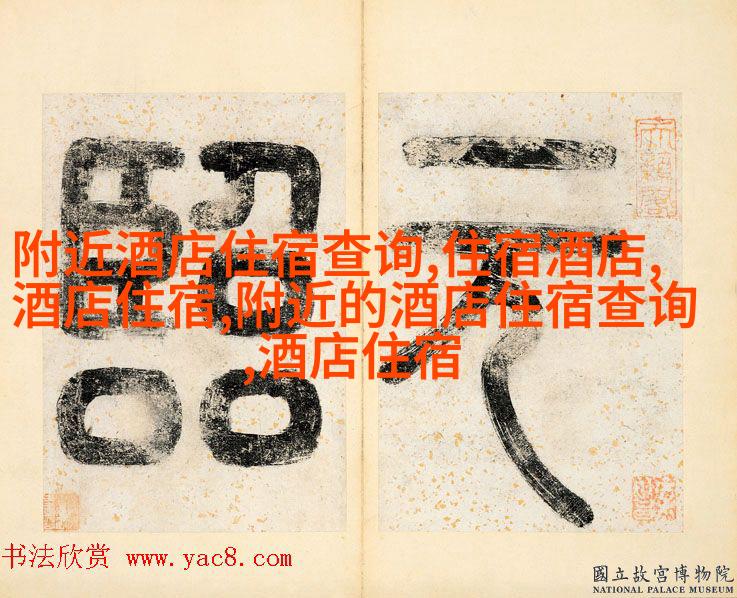 元
附近酒店住宿查询,住宿酒店,
酒店住宿,附近的酒店住宿查询
,酒店住宿
书法欣赏 www.yac8.com
國立故宮博物院
NATIONAL PALACE MUSEUM